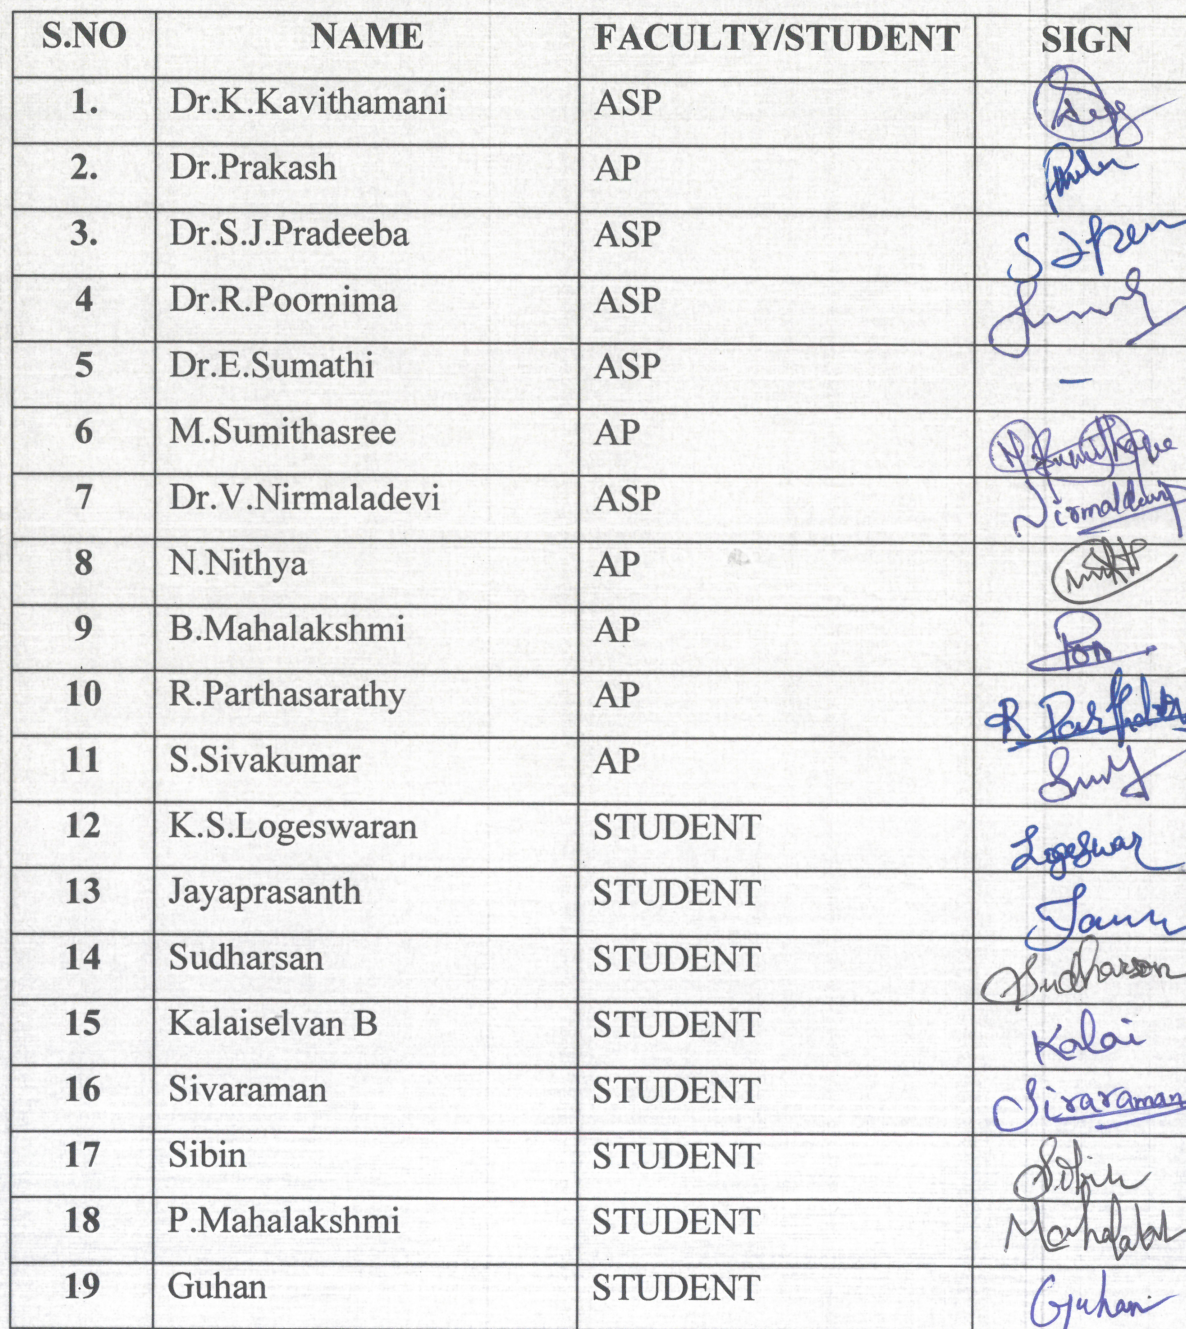 S.NO NAME FACULTY/STUDENT SIGN
1. Dr.K.Kavithamani ASP
2. Dr.Prakash AP
3. Dr.S.J.Pradeeba ASP
4 Dr.R.Poornima ASP
5 Dr.E.Sumathi ASP –
6 M.Sumithasree AP
7 Dr.V.Nirmaladevi ASP
8 N.Nithya AP
9 B.Mahalakshmi AP
10 R.Parthasarathy AP
11 S.Sivakumar AP
12 K.S.Logeswaran STUDENT
13 Jayaprasanth STUDENT
14 Sudharsan STUDENT Sudharson
15 Kalaiselvan B STUDENT Kalai
16 Sivaraman STUDENT Sivaraman
17 Sibin STUDENT Sibin
18 P.Mahalakshmi STUDENT
19 Guhan STUDENT Guhan